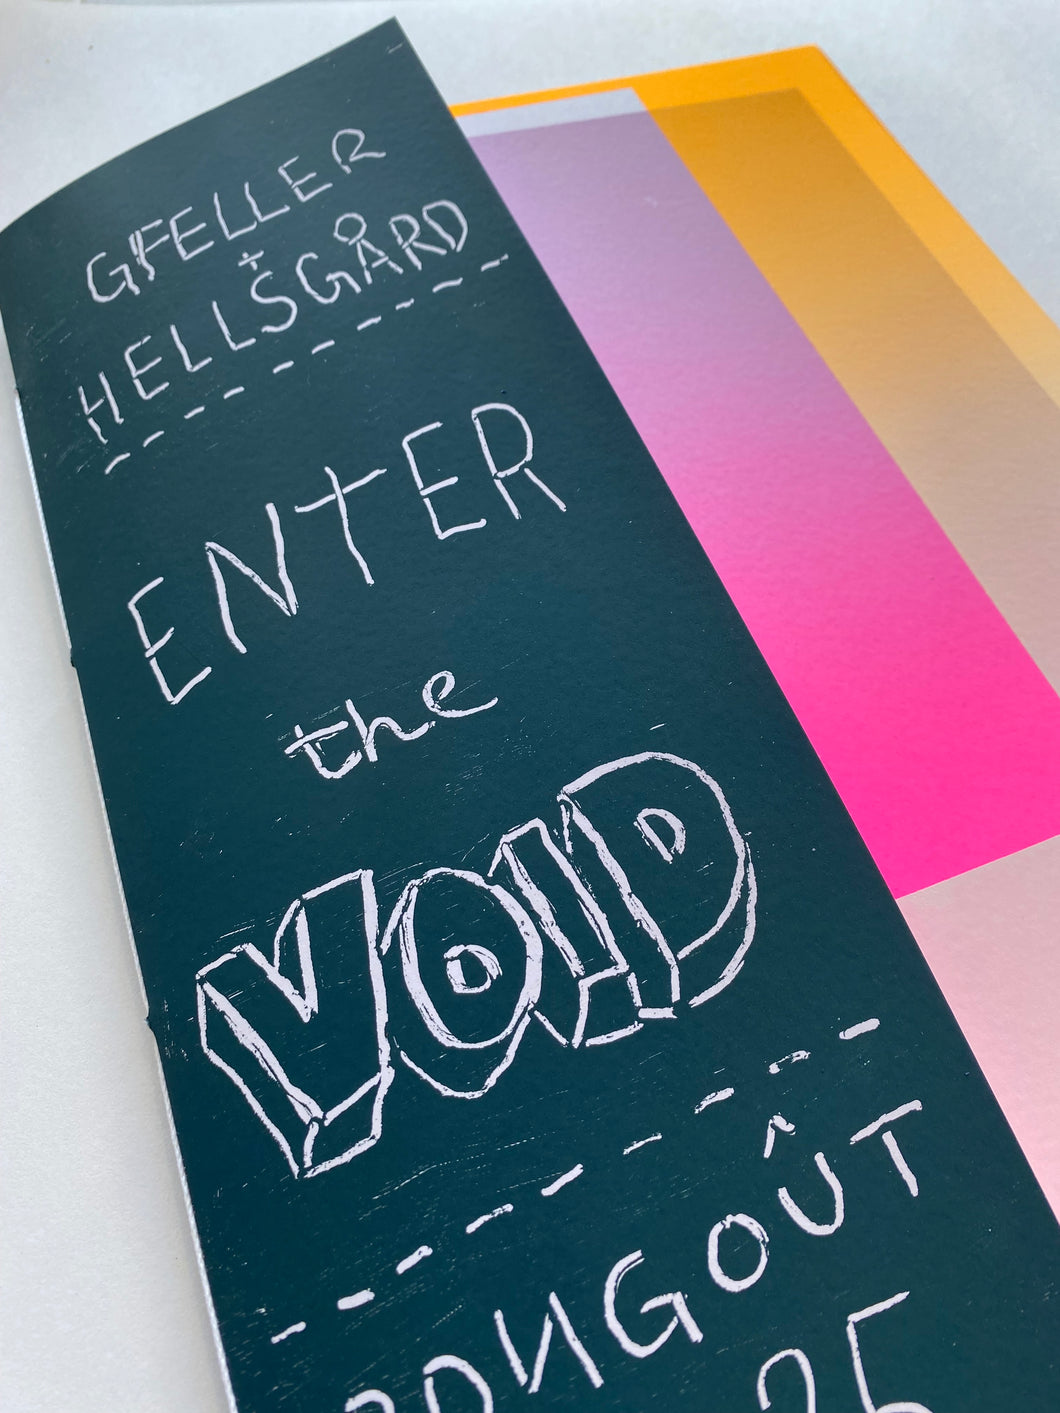 GFELLER
+
HELLSGÅRD
ENTER
the
VOID
BONGOÛT
25